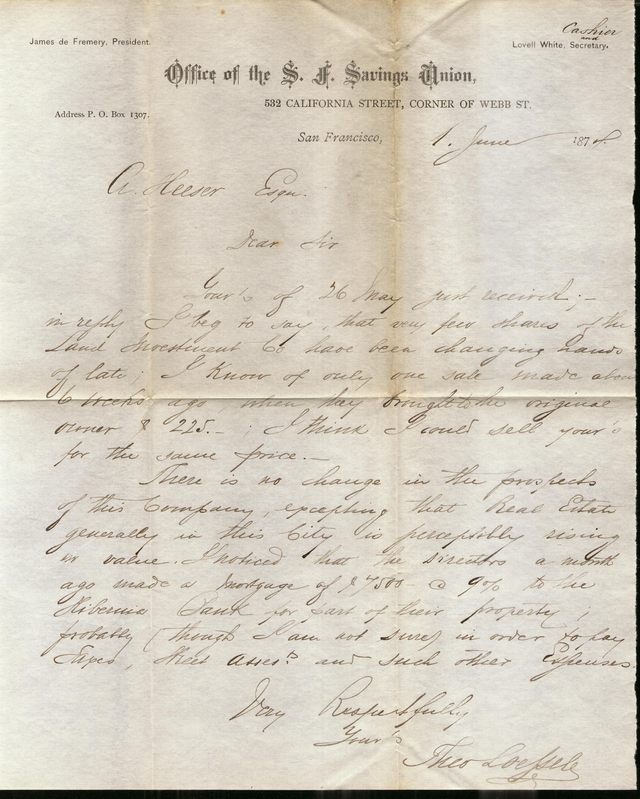 James de Fremery, President.
Cashier
and
Lovell White, Secretary.
Office of the S. F. Savings Union,
532 CALIFORNIA STREET, CORNER OF WEBB ST.
Address P. O. Box 1307.
San Francisco, 1. June 1874.
A. Heeser Esqu.
Dear Sir
Your's of 26 May just received; –
in reply I beg to say, that very few shares of the
Land Investment Co have been changing hands
of late; I know of only one sale made about
6 weeks ago when they brought to the original
owner $ 225.– ; I think I could sell your's
for the same price. –
There is no change in the prospects
of this Company, excepting that Real Estate
generally in this City is perceptibly rising
in value. I noticed that the Directors a month
ago made a Mortgage of $7500 – @ 9% to the
Hibernia Bank for part of their property;
probably (though I am not sure) in order to pay
Taxes, Street Assets. and such other Expenses.
Very Respectfully
Your's
Theo